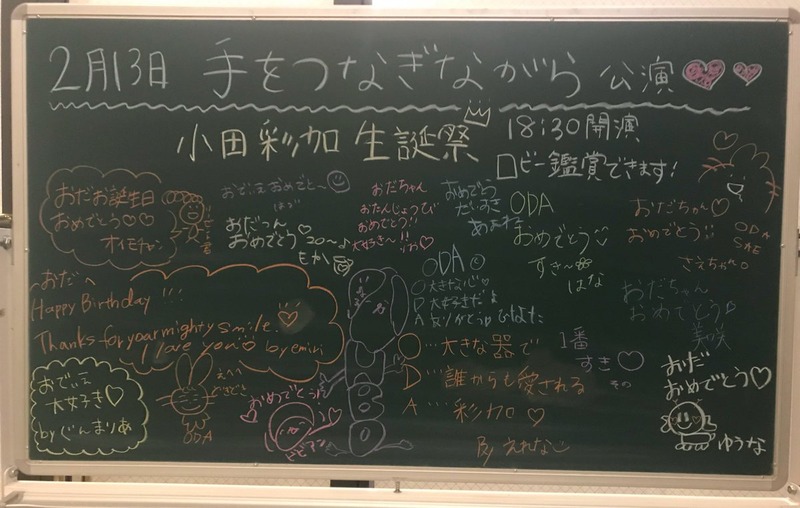 2月13日 手をつなぎながら 公演
小田彩加 生誕祭
18:30開演
ロビー鑑賞できます!
おだお誕生日
おめでとう♡♡
おだちゃん
おたんじょうび
おめでとう!!
大好き〜!!
おめでとう
だいすき
おだっん
おめでとう
もか
ODA
おめでとう
すき〜
はな
おだちゃん♡
おめでとう
さえちゃん
ODA
SAE
おだへ
Happy Birthday!!!
Thanks for your mighty smile.
I love you♡ by emiri
ODA
O 大きな心♡
D 大好きだよ
A ありがとう ひなた
おだちゃん
おめでとう
美咲
O…大きな器で
D…誰からも愛される
A…彩加♡
By えれな
1番
すき♡
その
おでぃえ
大好き♡
by ぐんまりあ
えへへ
ODA
おめでとうだ
ビビアン
おだ
おめでとう♡
ゆうな